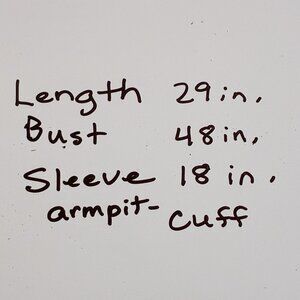 Length 29 in.
Bust 48 in.
Sleeve 18 in.
armpit- Cuff